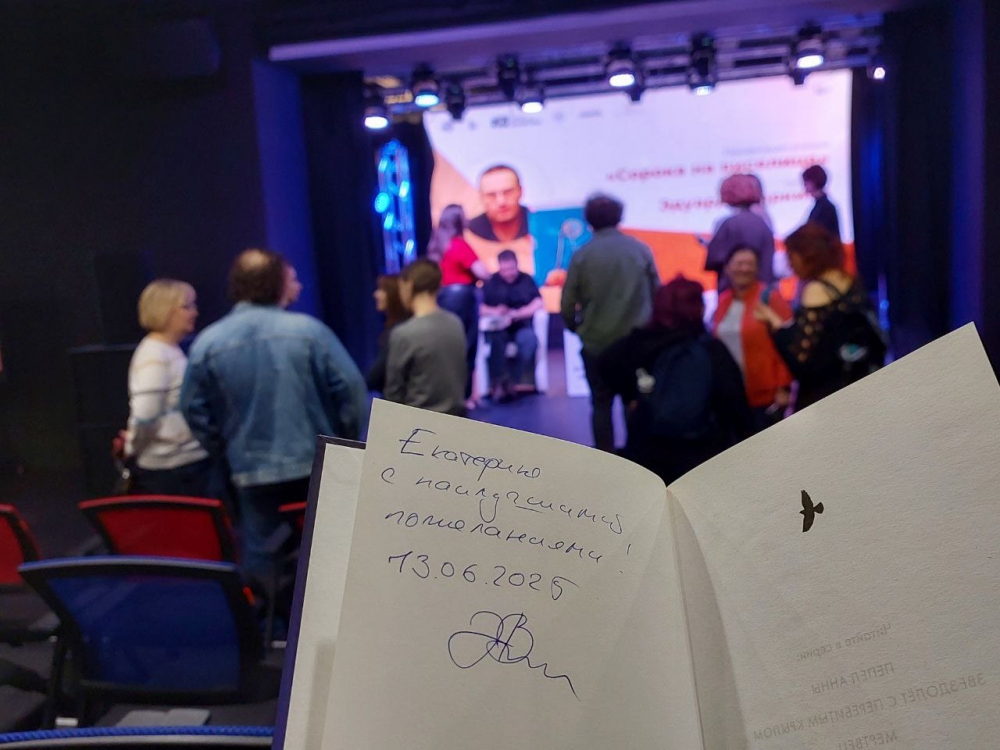 «Сорока на виселице»
Екатерине
с наилучшими
пожеланиями!
13.06.2025
Читайте в серии:
ПЕПЕЛ АННЫ
ЗВЕЗДОЛЁТ С ПЕРЕБИТЫМ КРЫЛОМ